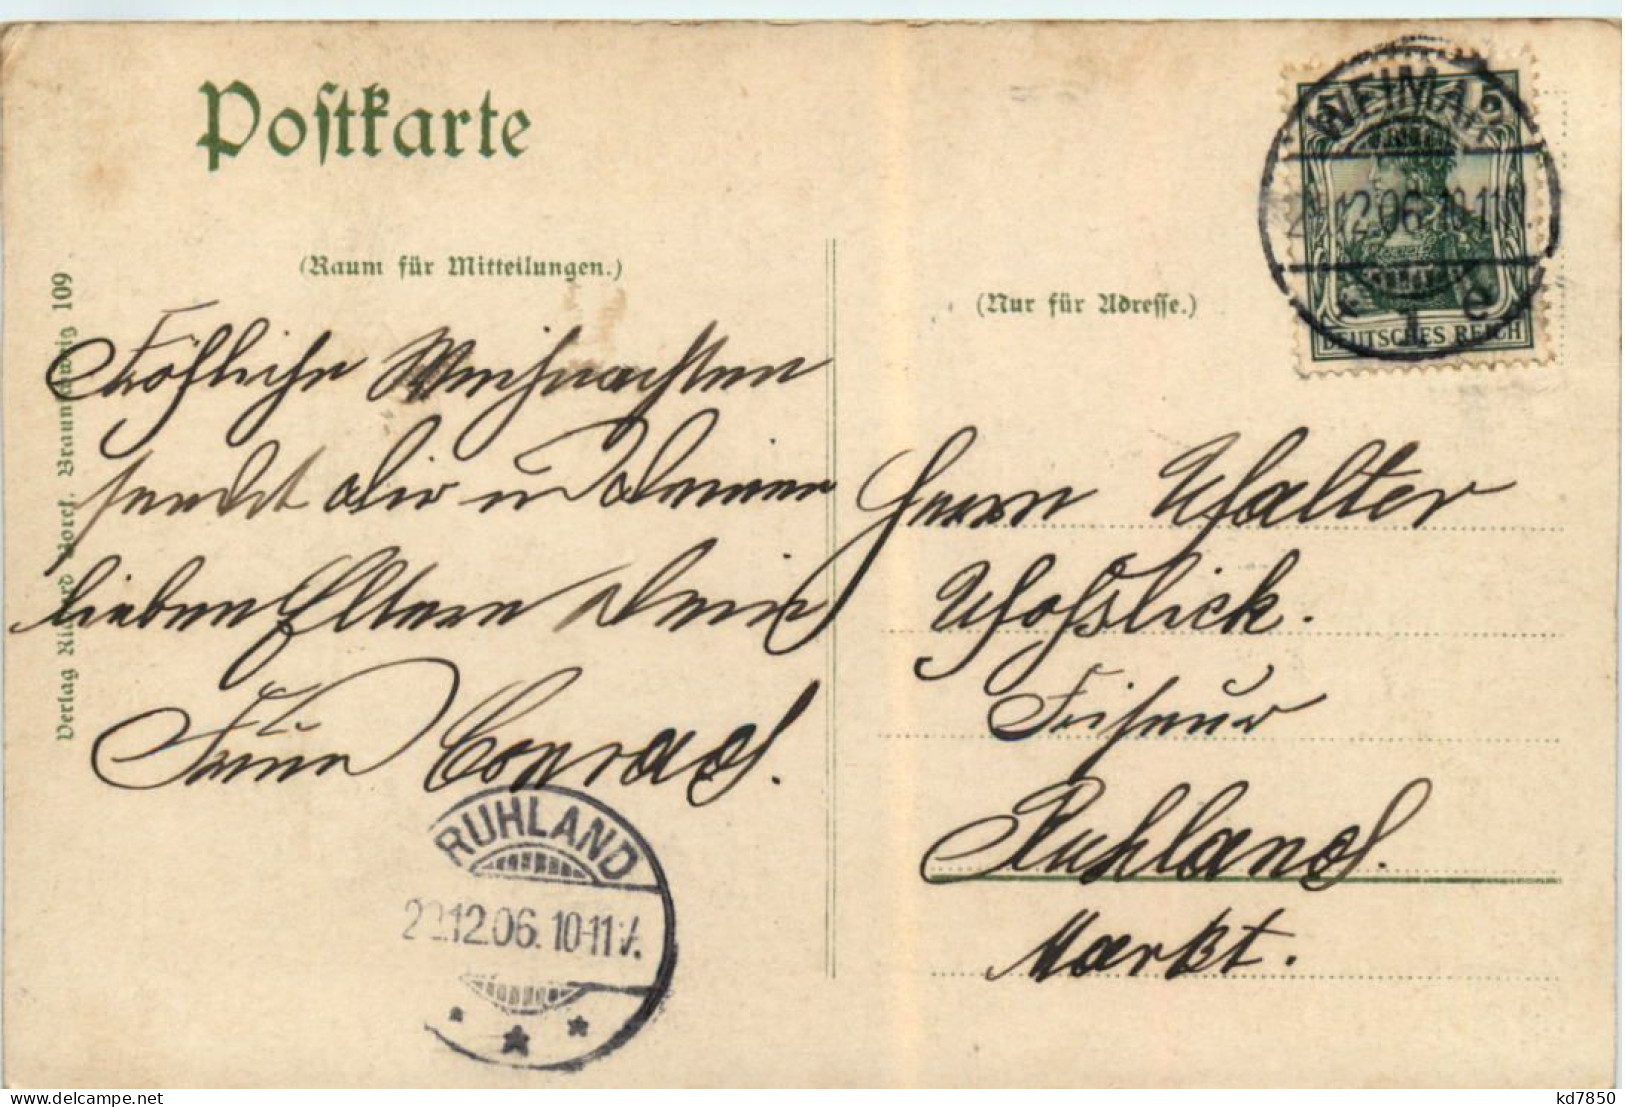 Postkarte
(Raum für Mitteilungen.)
Fröhliche Weihnachten
sendet dir u Deinen
lieben Eltern Dein
Conrad.
Verlag Richard Borek, Braunschweig 109
RUHLAND
12.06. 10-11V.
(Nur für Adresse.)
WEIMAR
12.06. 10-11V.
1 e
DEUTSCHES REICH
Herrn Walter
Woßlick.
Friseur
Ruhland.
Markt.
kd7850